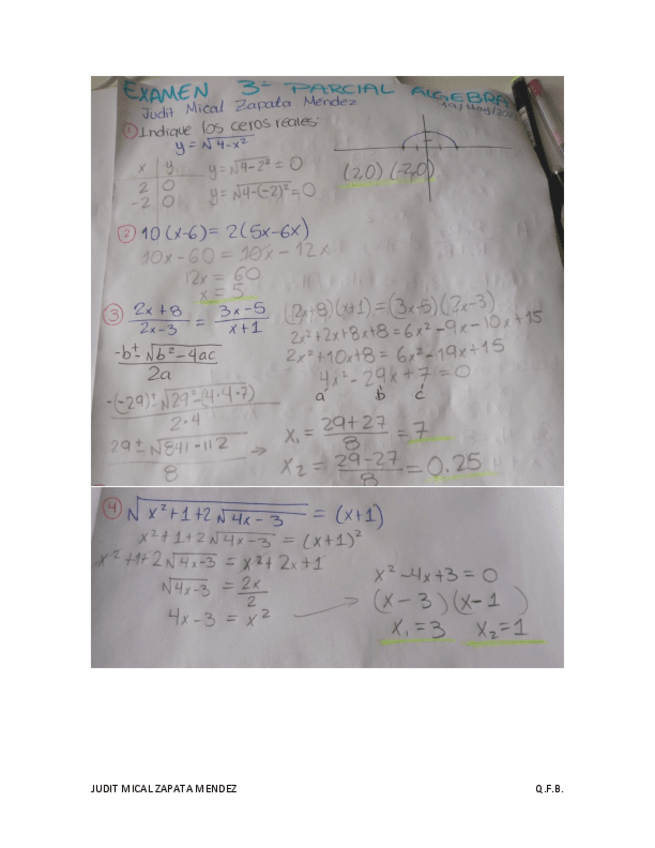 EXAMEN 3er PARCIAL ALGEBRA
Judit Mical Zapata Mendez
① Indique los ceros reales:
y = √4-x²
x | y
2 | 0
-2 | 0
y = √4-2² = 0
y = √4-(-2)² = 0
(2,0) (-2,0)
② 10(x-6) = 2(5x-6x)
10x-60 = 10x-12x
12x = 60
x = 5
③ 2x+8 / 2x-3 = 3x-5 / x+1
-b±√b²-4ac / 2a
-(-29)±√29²-(4·4·7) / 2·4
29±√841-112 / 8
(2x+8)(x+1) = (3x-5)(2x-3)
2x²+2x+8x+8 = 6x²-9x-10x+15
2x²+10x+8 = 6x²-19x+15
4x²-29x+7 = 0
a b c
x₁ = 29+27 / 8 = 7
x₂ = 29-27 / 8 = 0.25
④ √x²+1+2√4x-3 = (x+1)
x²+1+2√4x-3 = (x+1)²
x²+1+2√4x-3 = x²+2x+1
√4x-3 = 2x / 2
4x-3 = x²
x²-4x+3 = 0
(x-3)(x-1)
x₁=3 x₂=1
JUDIT MICAL ZAPATA MENDEZ
Q.F.B.